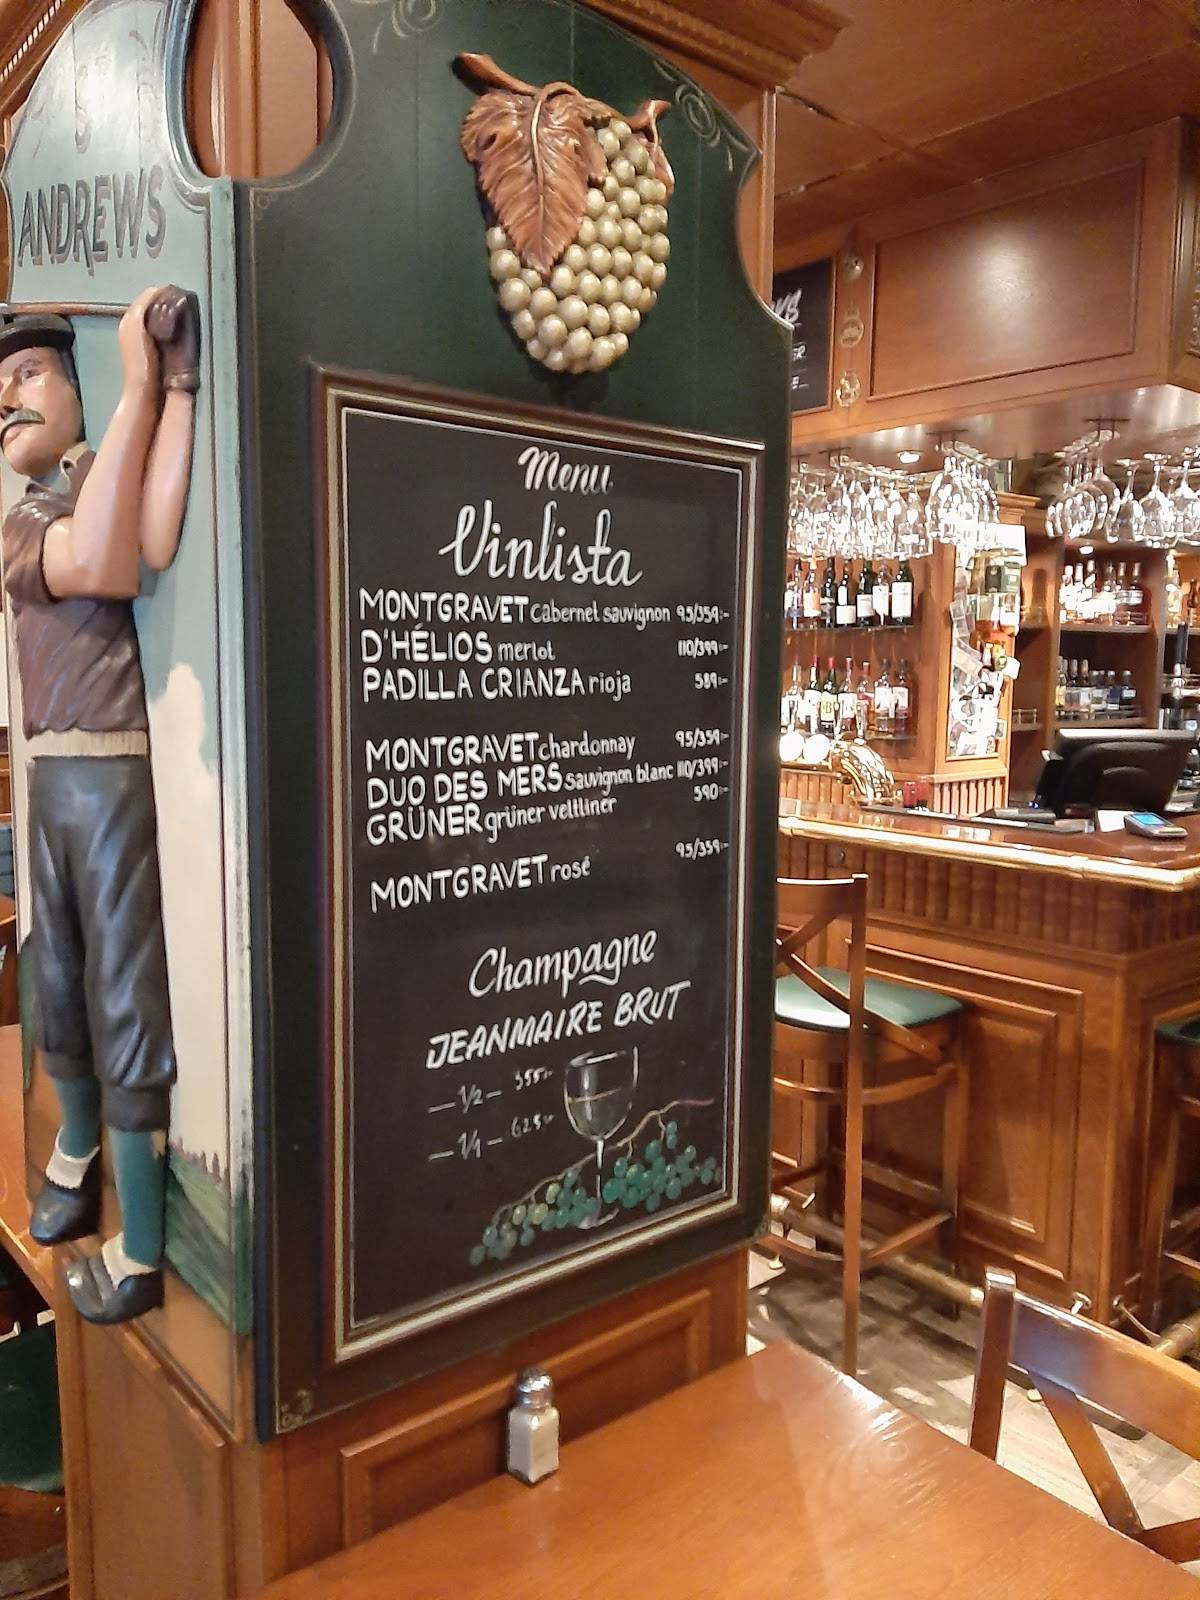 ANDREWS
Menu
Vinlista
MONTGRAVET cabernet sauvignon 95/359:-
D'HÉLIOS merlot 110/399:-
PADILLA CRIANZA rioja 589:-
MONTGRAVET chardonnay 95/359:-
DUO DES MERS sauvignon blanc 110/399:-
GRÜNER grüner veltliner 590:-
MONTGRAVET rosé 95/359:-
Champagne
JEANMAIRE BRUT
— 1/2 — 355:-
— 1/1 — 625:-